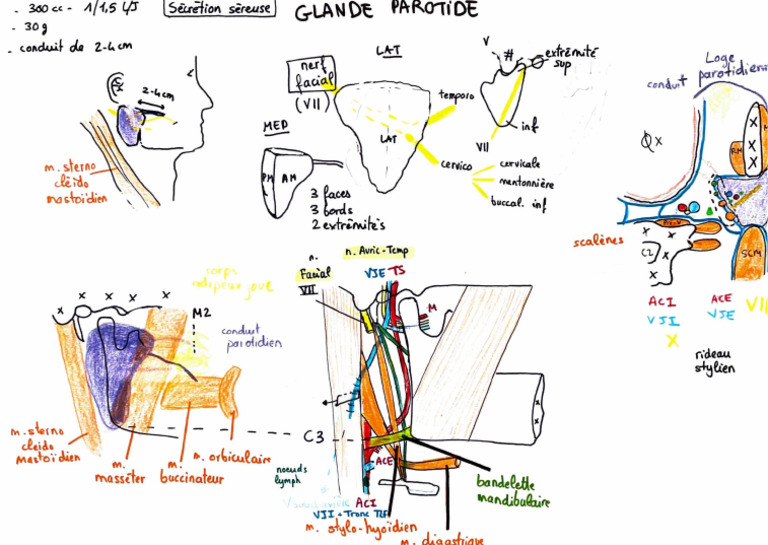 - 300 cc - 1/1,5 L/J
- 30g
- conduit de 2-4cm
Sécrétion séreuse
GLANDE PAROTIDE
2-4cm
m. sterno
cléido
mastoïdien
LAT
nerf
facial
(VII)
LAT
temporo
cervico
cervicale
mentonnière
buccal. inf
MED
PM
AM
3 faces
3 bords
2 extrémités
V
#
extrémité
sup
VII
inf
Loge
parotidien
conduit
Qx
X
X
X
RM
M
scalènes
X
X
C2
X
SCM
ACI
VJI
X
ACE
VJE
VII
rideau
stylien
corps
adipeux joue
X X X X X
M2
conduit
parotidien
m. sterno
cléido
mastoïdien
m.
masséter
m.
buccinateur
m. orbiculaire
n.
Facial
VII
n. Auric-Temp
VJE TS
M
X
X
C3
ACE
noeuds
lymph
ACI
VJI + Tronc TLF
m. stylo-hyoïdien
m. digastrique
bandelette
mandibulaire